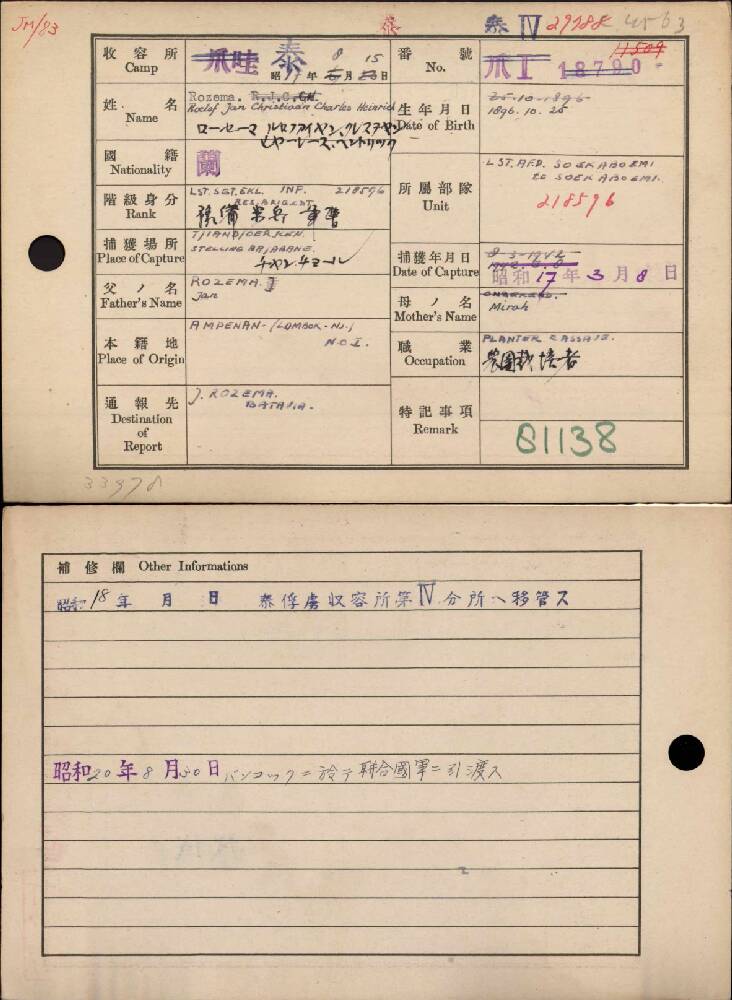 JM/83
泰
泰 IV 29788 4563
收容所 Camp
爪哇 泰
昭17年8月15日
番號 No.
爪I 18790
11504
姓名 Name
Rozema. R.J.C.CH.
Roelof Jan Christiaan Charles Heinrich
ローゼーマ
生年月日 Date of Birth
25-10-1896
1896.10.25
國籍 Nationality
蘭
階級身分 Rank
LST. SGT. EKL. INF. 218596
所屬部隊 Unit
LST. AFD. SOEKABOEMI
te SOEKABOEMI.
218596
捕獲場所 Place of Capture
TJIANDJOER KEN.
捕獲年月日 Date of Capture
8-3-1942
昭和17年3月8日
父ノ名 Father's Name
ROZEMA. J
Jan
母ノ名 Mother's Name
Mirah
本籍地 Place of Origin
AMPENAN-(LOMBOK-NI)
N.O.I.
職業 Occupation
PLANTER CASSAVE.
農園栽培者
通報先 Destination of Report
J. ROZEMA.
BATAVIA.
特記事項 Remark
81138
33978
補修欄 Other Informations
昭和18年 月 日 泰俘虜収容所第IV分所ヘ移管ス
昭和20年8月30日 バンコックニ於テ聯合國軍ニ引渡ス